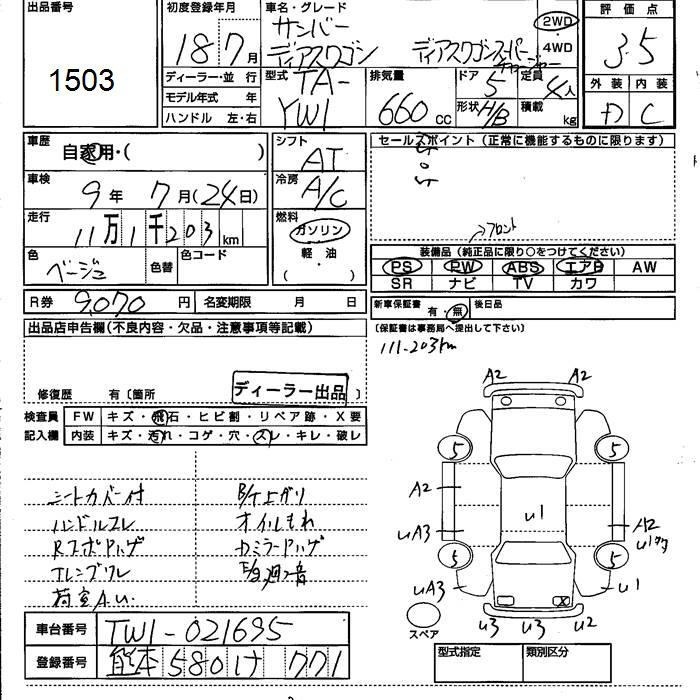 出品番号
1503
初度登録年月
18 7月
車名・グレード
サンバー
ディアスワゴン ディアスワゴンスーパー
チャージャー
2WD
・
4WD
評価点
3.5
外装 内装
D C
ディーラー・並 行
モデル年式 年
ハンドル 左・右
型式 TA-
TW1
排気量
660 cc
ドア 5
形状 H/B
定員 4人
積載 kg
車歴
自家用・( )
シフト
AT
セールスポイント(正常に機能するものに限ります)
車検
9年 7月(24日)
冷房
A/C
走行
11万1千203km
燃料
ガソリン
軽・油
( )
フロント
色
ベージュ
色替
色コード
装備品(純正品に限り○をつけてください)
PS PW ABS エアB AW
SR ナビ TV カワ
R券 9,070円 名変期限 月 日
新車保証書 有・無 後日品
(保証書は事務局へ提出して下さい)
出品店申告欄(不良内容・欠品・注意事項等記載)
111-203km
修復歴 有〔箇所 〕
ディーラー出品
検査員
記入欄
FW キズ・飛石・ヒビ割・リペア跡・X要
内装 キズ・汚れ・コゲ・穴・スレ・キレ・破レ
シートカバー付
ハンドルスレ
エンブワレ
荷室A.U.
オイルもれ
A2 A2
5 5
A2
U1
UA3
A2
5 5
UA3
U1
X
U3 U3 U2
スペア
車台番号 TW1-021695
登録番号 熊本580け771
型式指定 類別区分